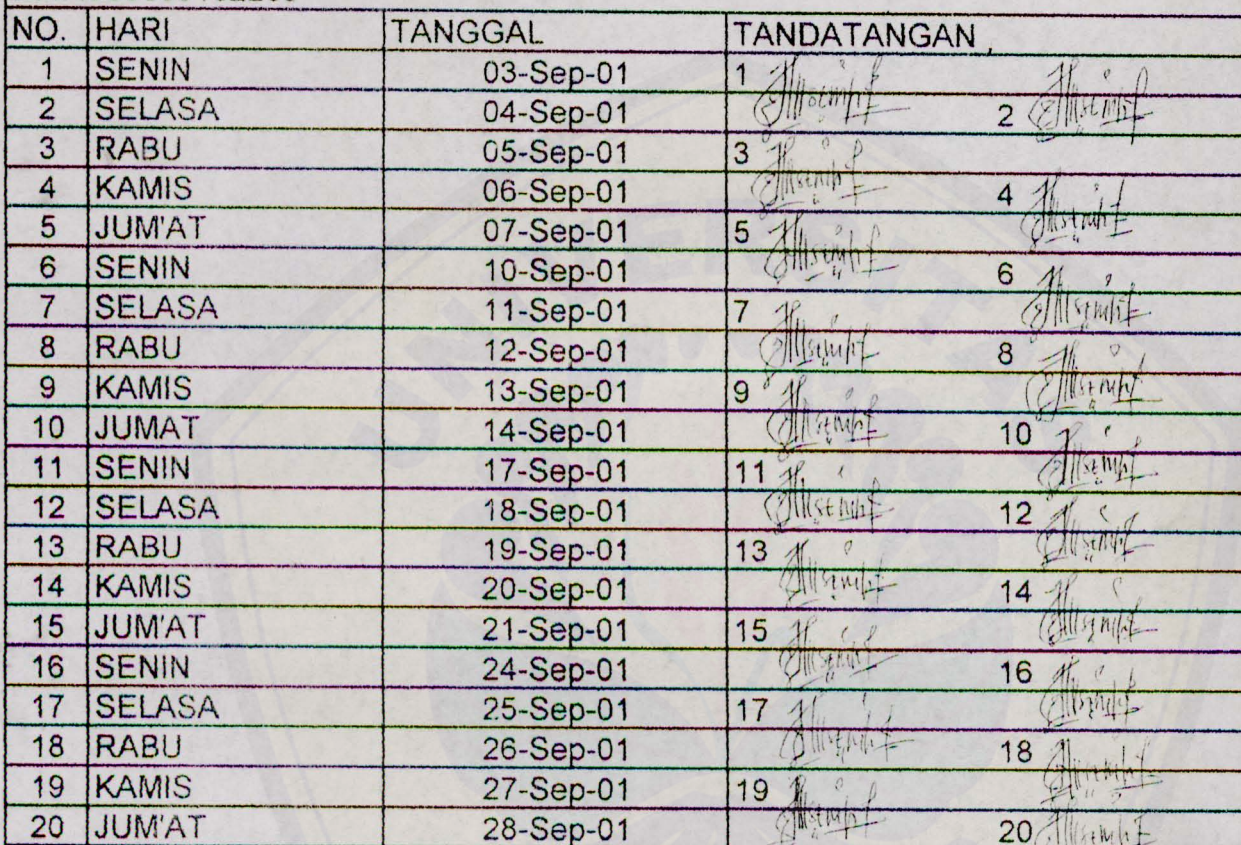 NO. HARI TANGGAL TANDATANGAN
1 SENIN 03-Sep-01 1
2 SELASA 04-Sep-01 2
3 RABU 05-Sep-01 3
4 KAMIS 06-Sep-01 4
5 JUM'AT 07-Sep-01 5
6 SENIN 10-Sep-01 6
7 SELASA 11-Sep-01 7
8 RABU 12-Sep-01 8
9 KAMIS 13-Sep-01 9
10 JUMAT 14-Sep-01 10
11 SENIN 17-Sep-01 11
12 SELASA 18-Sep-01 12
13 RABU 19-Sep-01 13
14 KAMIS 20-Sep-01 14
15 JUM'AT 21-Sep-01 15
16 SENIN 24-Sep-01 16
17 SELASA 25-Sep-01 17
18 RABU 26-Sep-01 18
19 KAMIS 27-Sep-01 19
20 JUM'AT 28-Sep-01 20